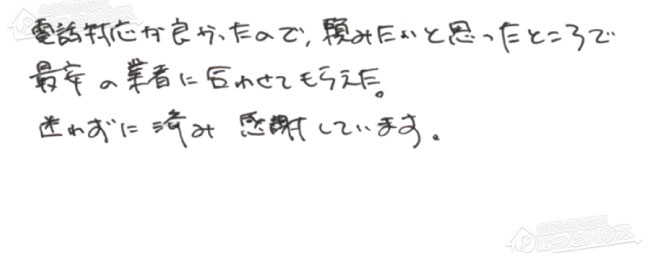 電話対応が良かったので、頼みたいと思ったところで
最安の業者に合わせてもらえた。
迷わずに済み 感謝しています。